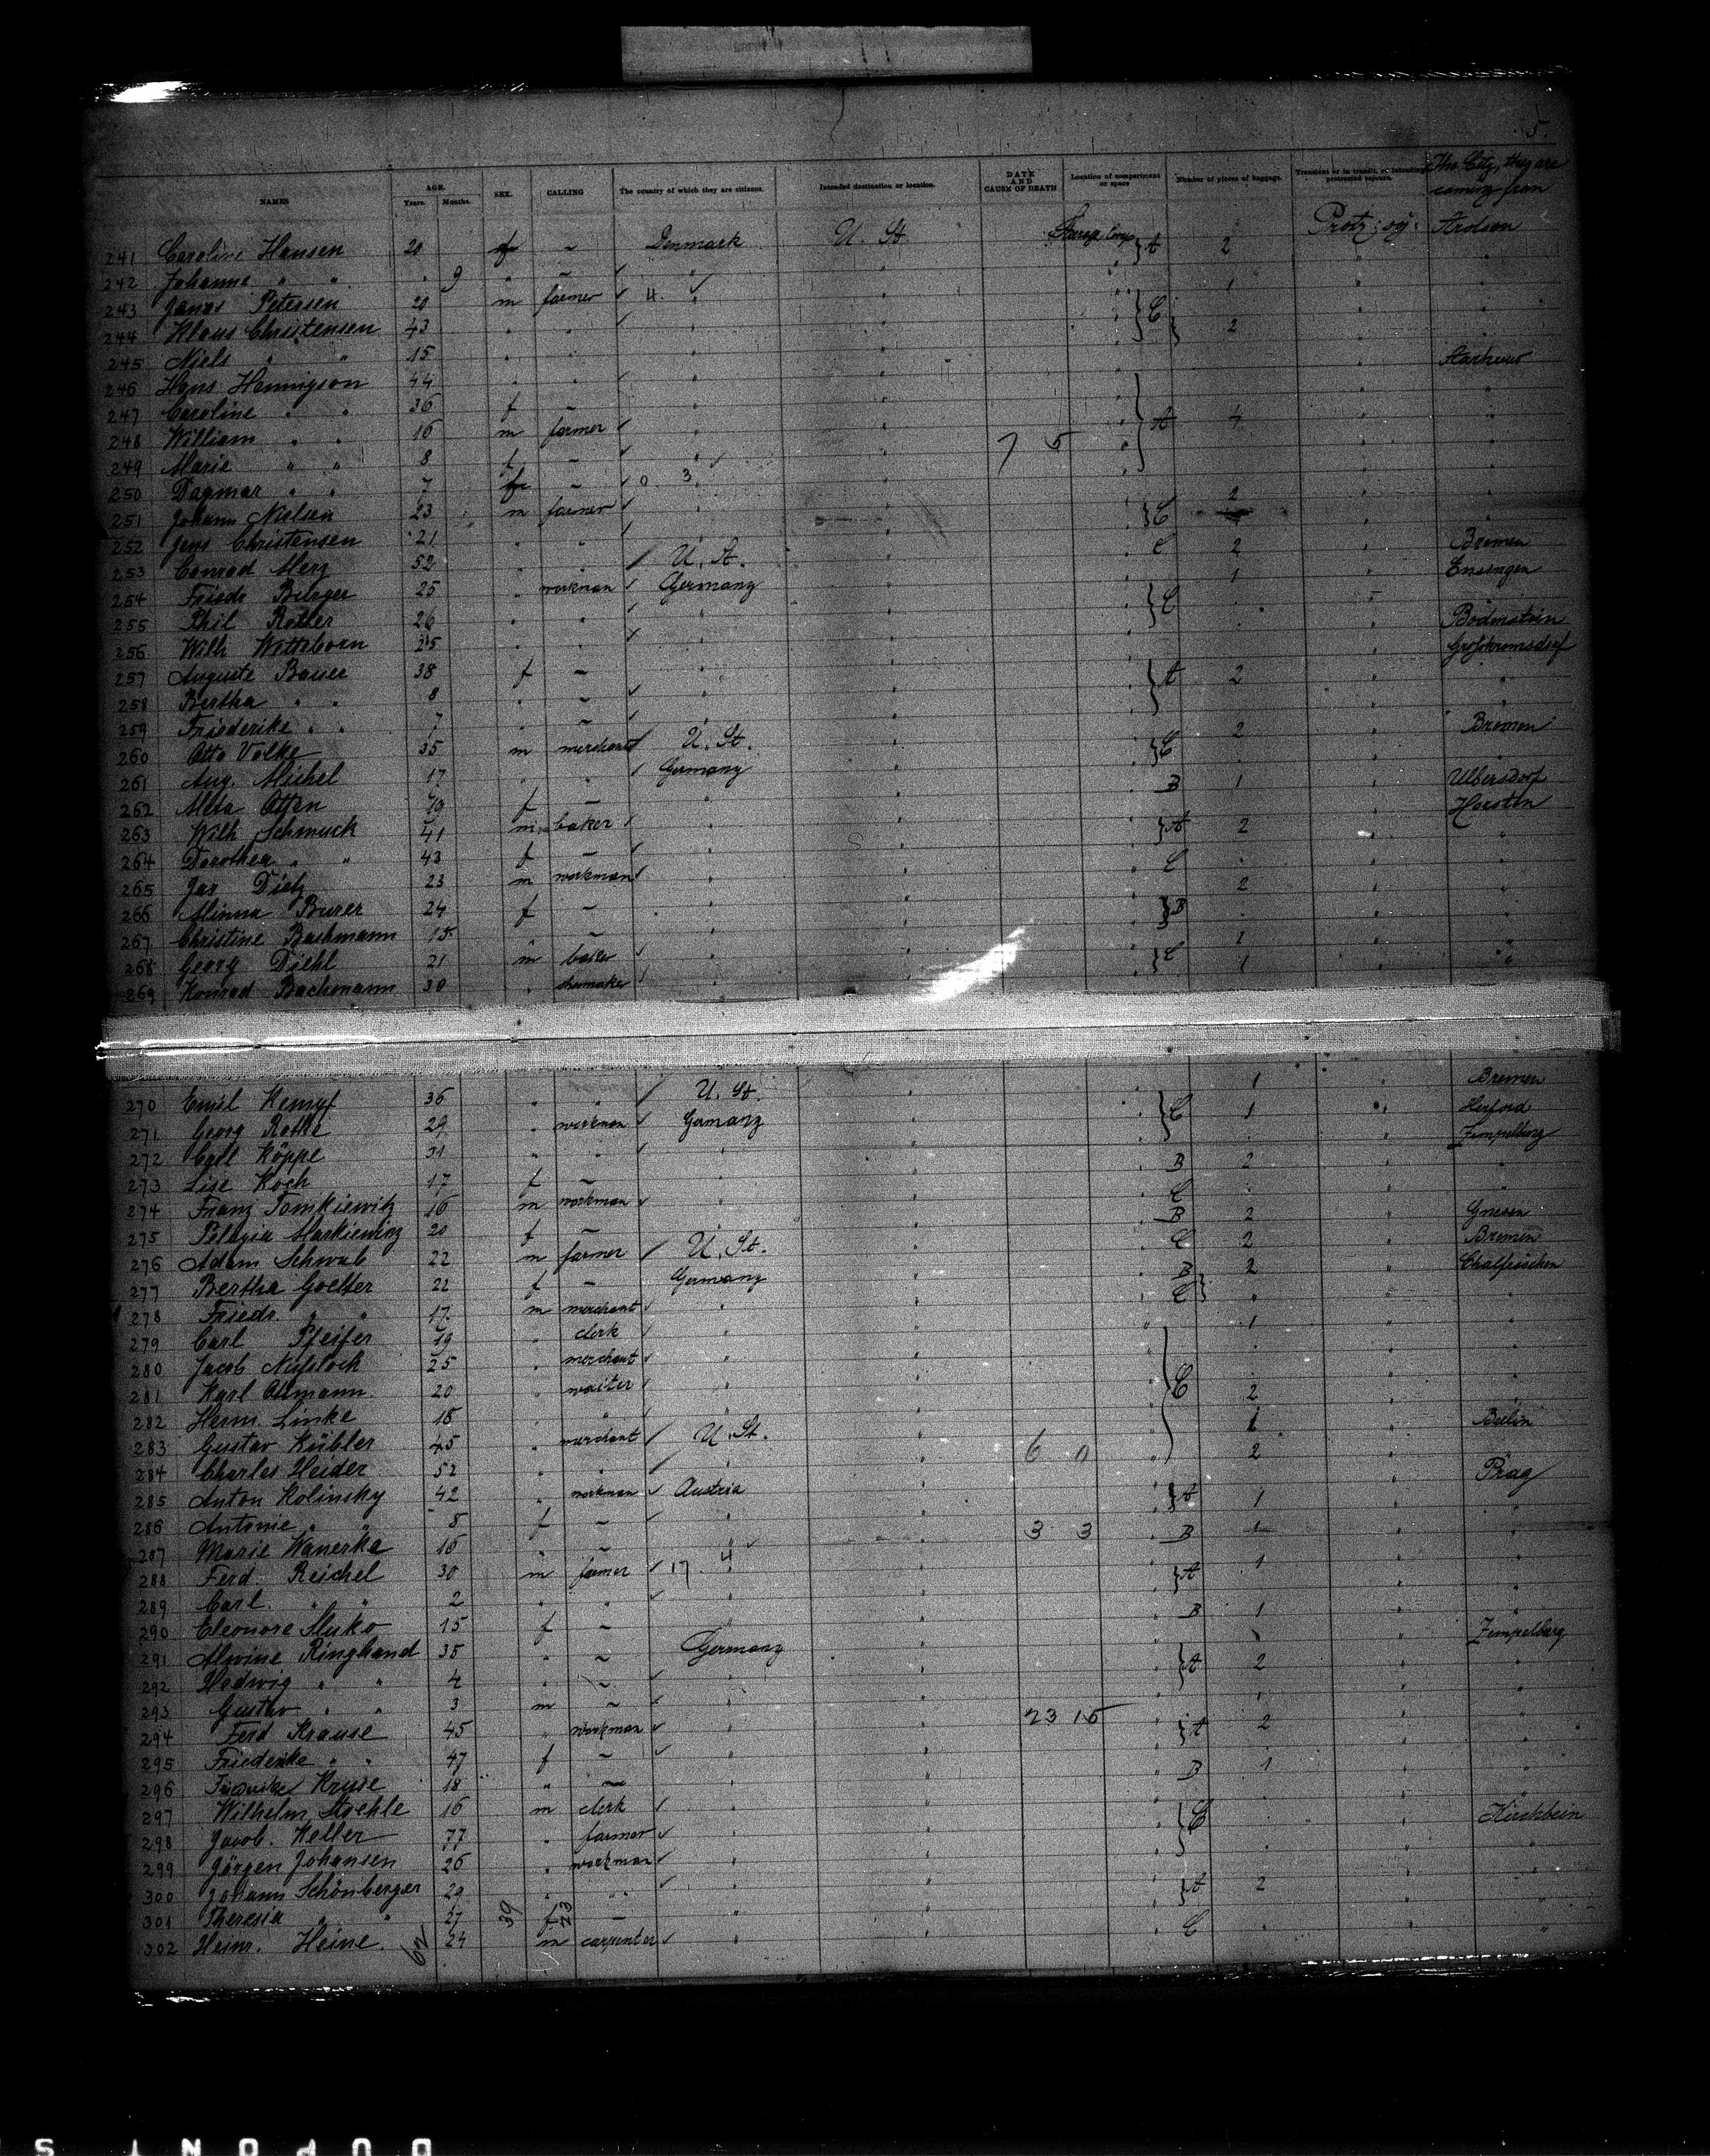 5.
NAMES AGE. Years. Months. SEX. CALLING The country of which they are citizens. Intended destination or location. DATE AND CAUSE OF DEATH Location of compartment or space Number of pieces of baggage. Transient or in transit, or intending protracted sojourn. The City, they are coming from
241 Caroline Hansen 20 f ~ Denmark U. St. A 2
242 Johanne " " 9 " ~ " "
243 Petersen 20 m farmer 4 " " 1
244 Klaus Christensen 43 " " " " C 2
245 Niels " " 15 " " " "
246 Hans Henningson 44 " " " " Aarhuus
247 Caroline " " 36 f ~ " "
248 William " " 16 m farmer " " A 4
249 Marie " " 8 f ~ " " 7 5
250 Dagmar " " 7 f ~ 0 3 "
251 Johann Nielsen 23 m farmer " " C 2
252 Jens Christensen 21 " " " "
253 Conrad Merz 52 " " U. St. " C 2 Bremen
254 Friedr Burger 25 " workman Germany " 1 Eningen
255 Phil Rotter 26 " " " " C
256 Wilh Wetterborn 25 " " " " Bodenstein
257 Auguste Bauer 38 f ~ " " A 2 Großkromsdorf
258 Bertha " " 8 " ~ " "
259 Friederike " " 7 " ~ " "
260 Otto Volke 35 m merchant U. St. " C 2 Bremen
261 Aug. Michel 17 " " Germany "
262 Meta Otten 19 f ~ " " B 1 Ulbersdorf
263 Wilh Schmuck 41 m baker " " A 2 Hersten
264 Dorothea " " 43 f ~ " "
265 Dietz 23 m workman " " C
266 Minna Burer 24 f ~ " " B 2
267 Christine Bachmann 15 " ~ " "
268 Georg Diehl 21 m baker " " C 1
269 Konrad Bachmann 30 " shoemaker " " 1
270 Emil Kempf 36 " " U. St. " 1 Bremen
271 Georg Rothe 29 " workman Germany " C 1 Herford
272 Carl Köppe 31 " " " " Zempelburg
273 Lise Koch 17 f ~ " " B 2
274 Franz Tomkiewitz 16 m workman " " C
275 Pelagia Markiewicz 20 f ~ " " B 2 Gnesen
276 Adam Schwab 22 m farmer U. St. " C 2 Bremen
277 Bertha Goelter 22 f ~ Germany " B 2
278 Friedr. " " 17 m merchant " " C
279 Carl Pfeifer 19 " clerk " " 1
280 Jacob Nußloch 25 " merchant " "
281 Karl Ollmann 20 " waiter " " C 2
282 Herm. Linke 18 " " " "
283 Gustav Kübler 45 " merchant U. St. " 1 Berlin
284 Charles Heider 52 " " " " 6 0 2
285 Anton Kolinsky 42 " workman Austria " A 1 Prag
286 Antonie " " 8 f ~ " "
287 Marie Wanerka 16 " ~ " " 3 3 B 1
288 Ferd. Reichel 30 m farmer 17 4 " A 1
289 Carl " " 2 " " " "
290 Eleonore Sluko 15 f ~ " " B 1
291 Alwine Ringhand 35 " ~ Germany " Zempelburg
292 Hedwig " " 4 " ~ " " A 2
293 Gustav " " 3 m ~ " "
294 Ferd Krause 45 " workman " " 23 15 A 2
295 Friederike " " 47 f ~ " "
296 Friederike Kruse 18 " ~ " " B 1
297 Wilhelm Staehle 16 m clerk " "
298 Jacob. Keller 77 " farmer " " C
299 Jörgen Johansen 26 " workman " "
300 Johann Schönberger 29 " " " " A 2
301 Theresia " " 27 f ~ " "
302 Heinr. Heine. 24 m carpenter " " C
62 39 23